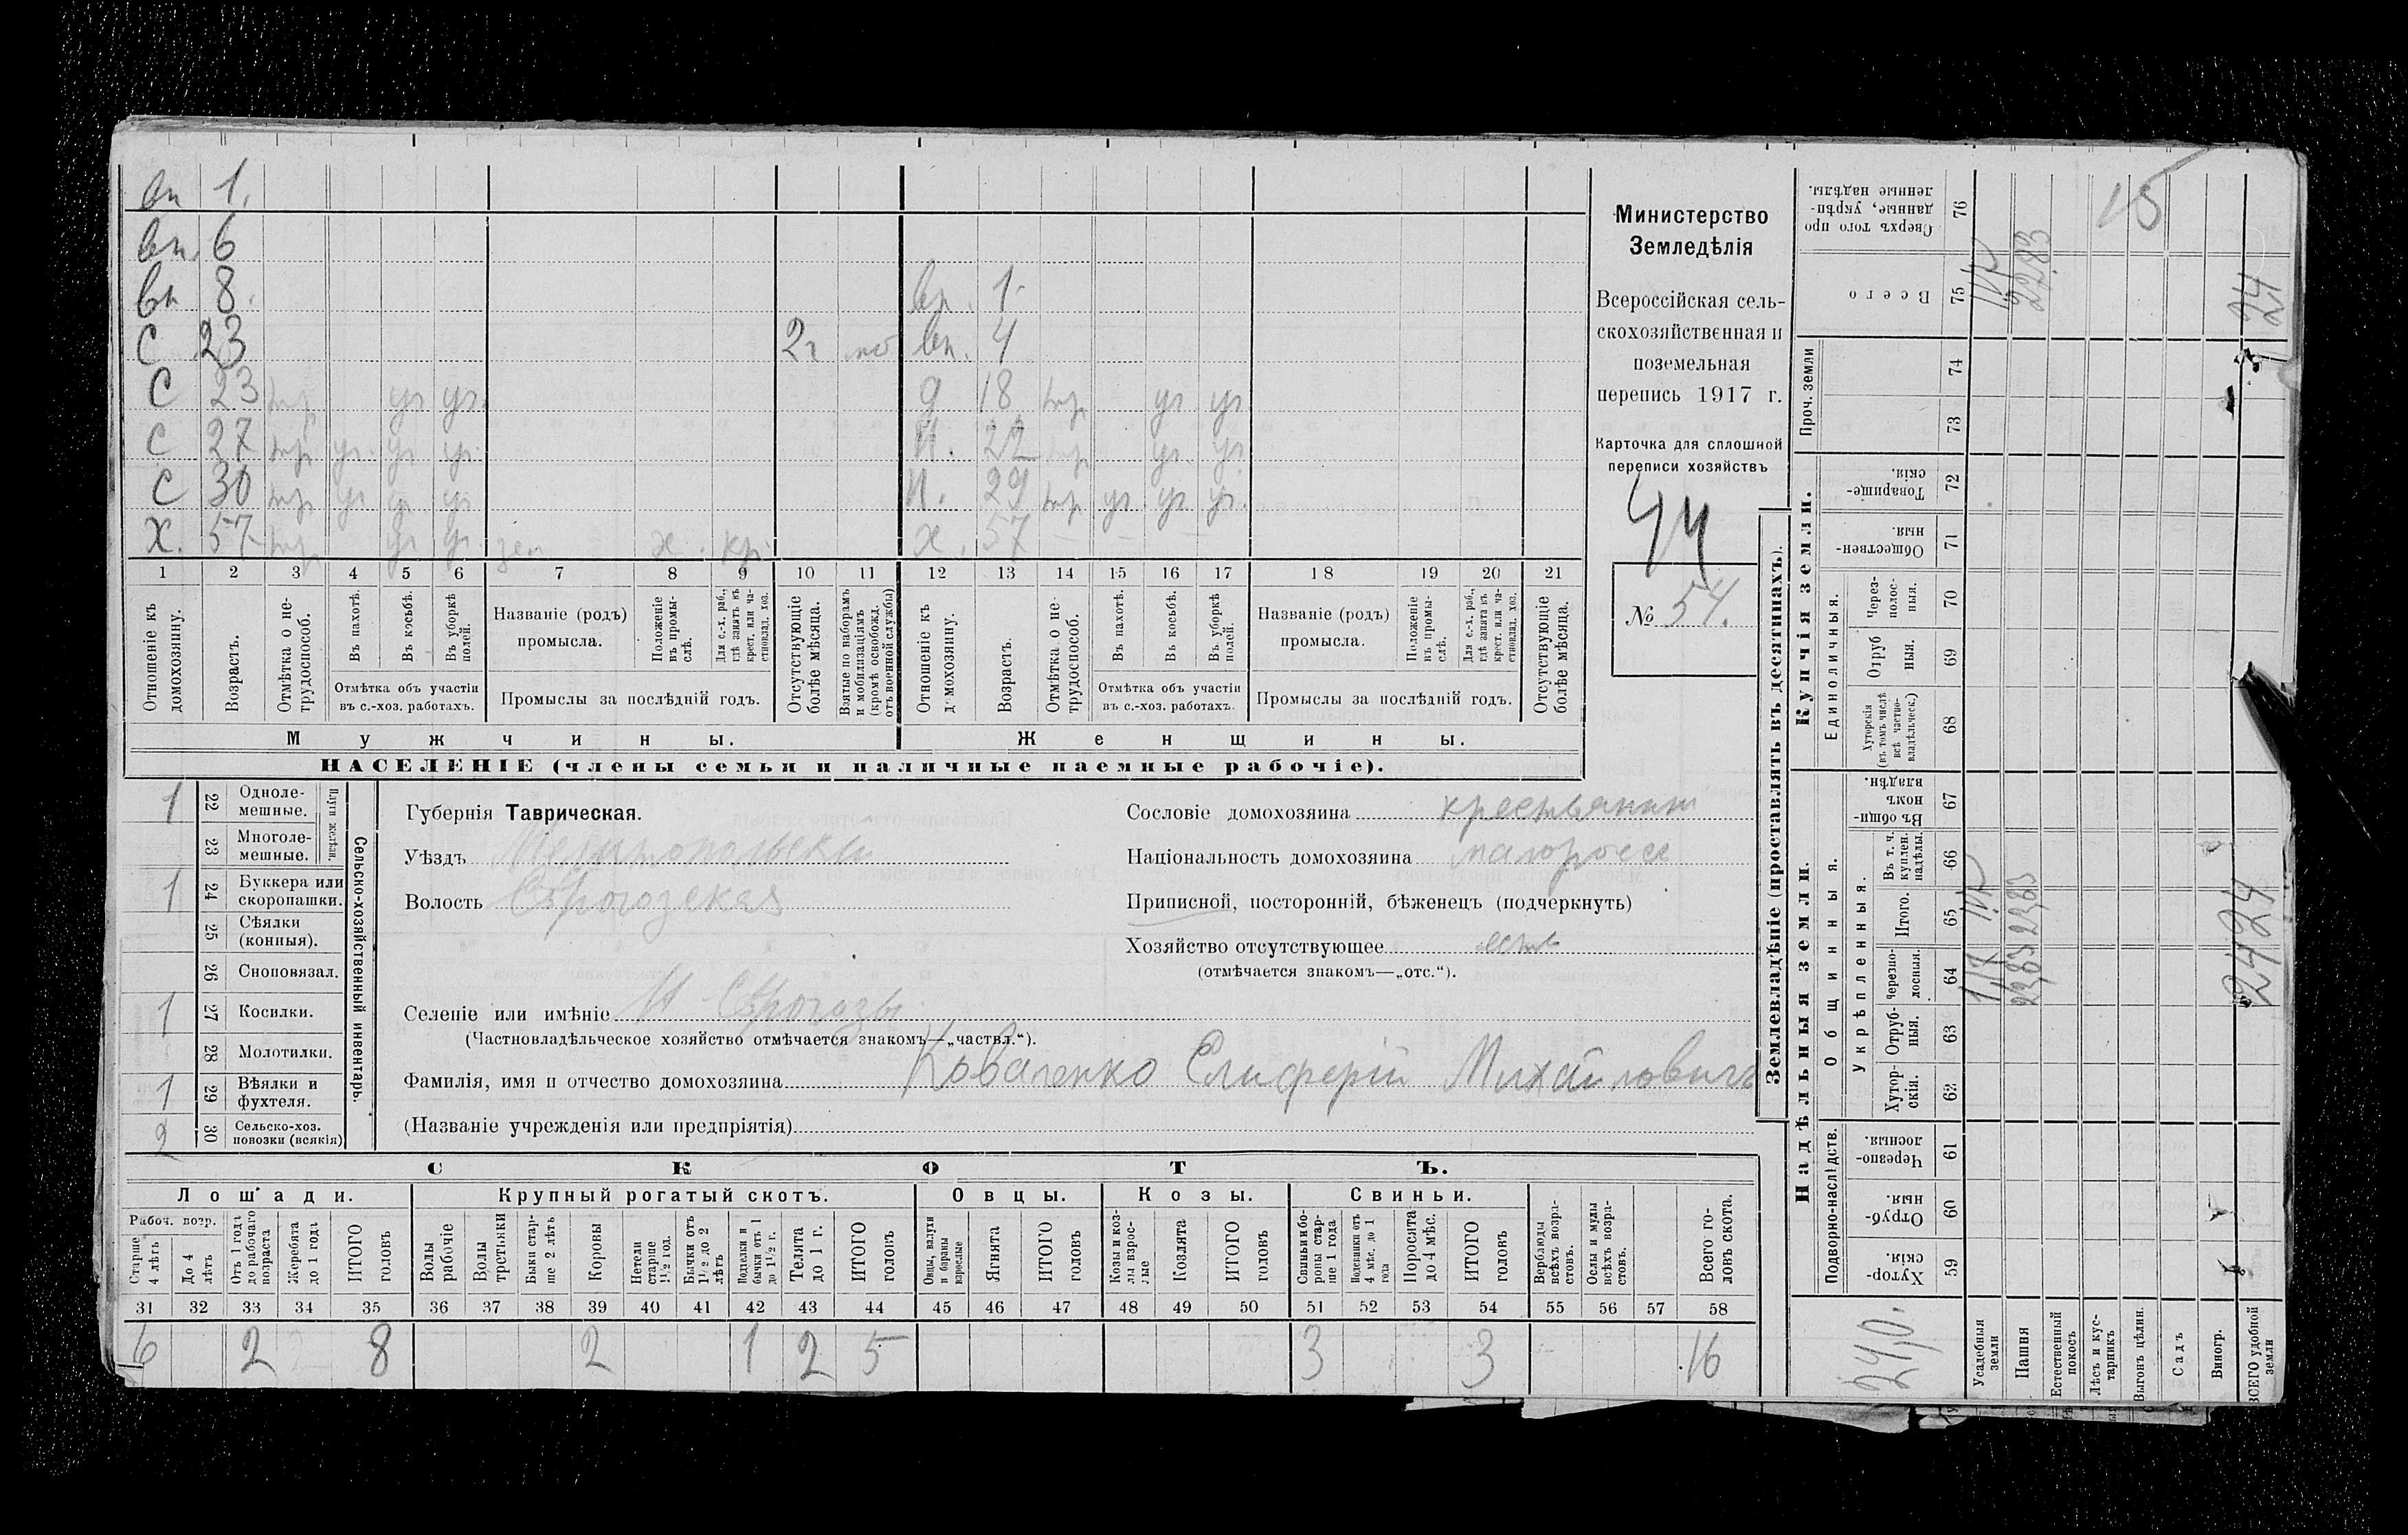 вн 1.
вн. 6
вн 8.
С 23 2 г мо
С 23 тр уч уч.
С 27 тр уч. уч уч.
С 30 тр уч уч уч
Х. 57 тр. уч уч. зем х. кр.
вн. 1
вн. 4
д 18 тр уч уч
Н. 22 тр уч. уч
Н. 29 тр уч. уч. уч.
х. 57 – – –
1 2 3 4 5 6 7 8 9 10 11 12 13 14 15 16 17 18 19 20 21
Отношеніе къ домохозяину.
Возрастъ.
Отмѣтка о нетрудоспособ.
Въ пахотѣ.
Въ косьбѣ.
Въ уборкѣ полей.
Отмѣтка объ участіи въ с.-хоз. работахъ.
Названіе (родъ) промысла.
Положеніе въ промыслѣ.
Для с.-х. раб., гдѣ занятъ въ крест. или частновлад. хоз.
Промыслы за послѣдній годъ.
Отсутствующіе болѣе мѣсяца.
Взятые по наборамъ и мобилизаціямъ (кромѣ освобожд. отъ военной службы)
Отношеніе къ домохозяину.
Возрастъ.
Отмѣтка о нетрудоспособ.
Въ пахотѣ.
Въ косьбѣ.
Въ уборкѣ полей.
Отмѣтка объ участіи въ с.-хоз. работахъ.
Названіе (родъ) промысла.
Положеніе въ промыслѣ.
Для с.-х. раб., гдѣ занята въ крест. или частновлад. хоз.
Промыслы за послѣдній годъ.
Отсутствующіе болѣе мѣсяца.
Мужчины. Женщины.
НАСЕЛЕНІЕ (члены семьи и наличные наемные рабочіе).
Министерство
Земледѣлія
Всероссійская сель-
скохозяйственная и
поземельная
перепись 1917 г.
Карточка для сплошной
переписи хозяйствъ
44
№ 54.
1 22 Однолемешные. Плуги желѣзн.
23 Многолемешные.
1 24 Буккера или скоропашки.
25 Сѣялки (конныя).
26 Сноповязал.
1 27 Косилки.
28 Молотилки.
1 29 Вѣялки и фухтеля.
2 30 Сельско-хоз. повозки (всякія)
Сельско-хозяйственный инвентарь.
Губернія Таврическая.
Уѣздъ Мелитопольскій
Волость С рогозская
Селеніе или имѣніе Н Сѣрогозы
(Частновладѣльческое хозяйство отмѣчается знакомъ—„частвл.“).
Фамилія, имя и отчество домохозяина Коваленко Елиферій Михайловичъ
(Названіе учрежденія или предпріятія)
Сословіе домохозяина крестьянинъ
Національность домохозяина малороссъ
Приписной, посторонній, бѣженецъ (подчеркнуть)
Хозяйство отсутствующее
(отмѣчается знакомъ—„отс.“).
СКОТЪ.
Лошади. Крупный рогатый скотъ. Овцы. Козы. Свиньи.
Рабоч. возр.
Старше 4 лѣтъ
До 4 лѣтъ
Отъ 1 года до рабочаго возраста
Жеребята до 1 года
ИТОГО головъ
Волы рабочіе
Волы третьяки
Быки старше 2 лѣтъ
Коровы
Нетели старше 1½ год.
Бычки отъ 1½ до 2 лѣтъ
Подтелки и бычки отъ 1 до 1½ г.
Телята до 1 г.
ИТОГО головъ
Овцы, валухи и бараны взрослые
Ягнята
ИТОГО головъ
Козы и козлы взрослые
Козлята
ИТОГО головъ
Свиньи и боровы старше 1 года
Подсвинки отъ 4 мѣс. до 1 года
Поросята до 4 мѣс.
ИТОГО головъ
Верблюды всѣхъ возрастовъ.
Ослы и мулы всѣхъ возрастовъ.
Всего головъ скота.
31 32 33 34 35 36 37 38 39 40 41 42 43 44 45 46 47 48 49 50 51 52 53 54 55 56 57 58
6 2 8 2 1 2 5 3 3 16
Землевладѣніе (проставлять въ десятинахъ).
Купчія земли.
Надѣльныя земли.
Сверхъ того проданные, укрѣпленные надѣлы. 76
Всего 75
Проч. земли 74 73
Товарищескія. 72
Общественныя. 71
Единоличныя.
Черезполосныя. 70
Отрубныя. 69
Хуторскія (въ томъ числѣ всѣ частновладѣльческ.) 68
Общинныя.
Въ общинномъ владѣн. 67
Укрѣпленныя.
Въ т. ч. куплен. надѣлы. 66
Итого. 65
Черезполосныя. 64
Отрубныя. 63
Хуторскія. 62
Подворно-наслѣдств.
Черезполосныя. 61
Отрубныя. 60
Хуторскія. 59
24,0.
Усадебныя земли 1,17
Пашня 22,83 22,83 22,83
Естественный покосъ
Лѣсъ и кустарникъ
Выгонъ цѣлин. 15
Садъ
Виногр.
ВСЕГО удобной земли 24 24 24